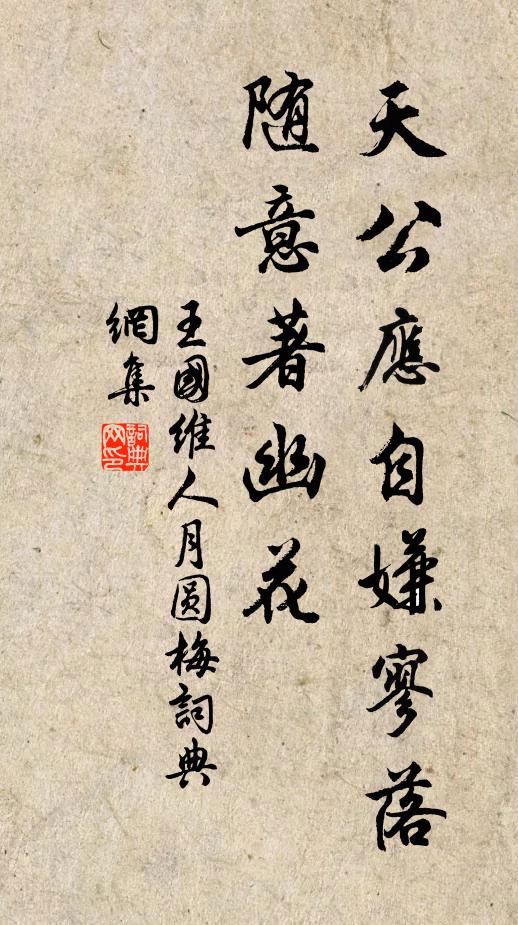 天公應自嫌寥落
随意著幽花
王國維人月圆梅詞典
網集
詞典
网印